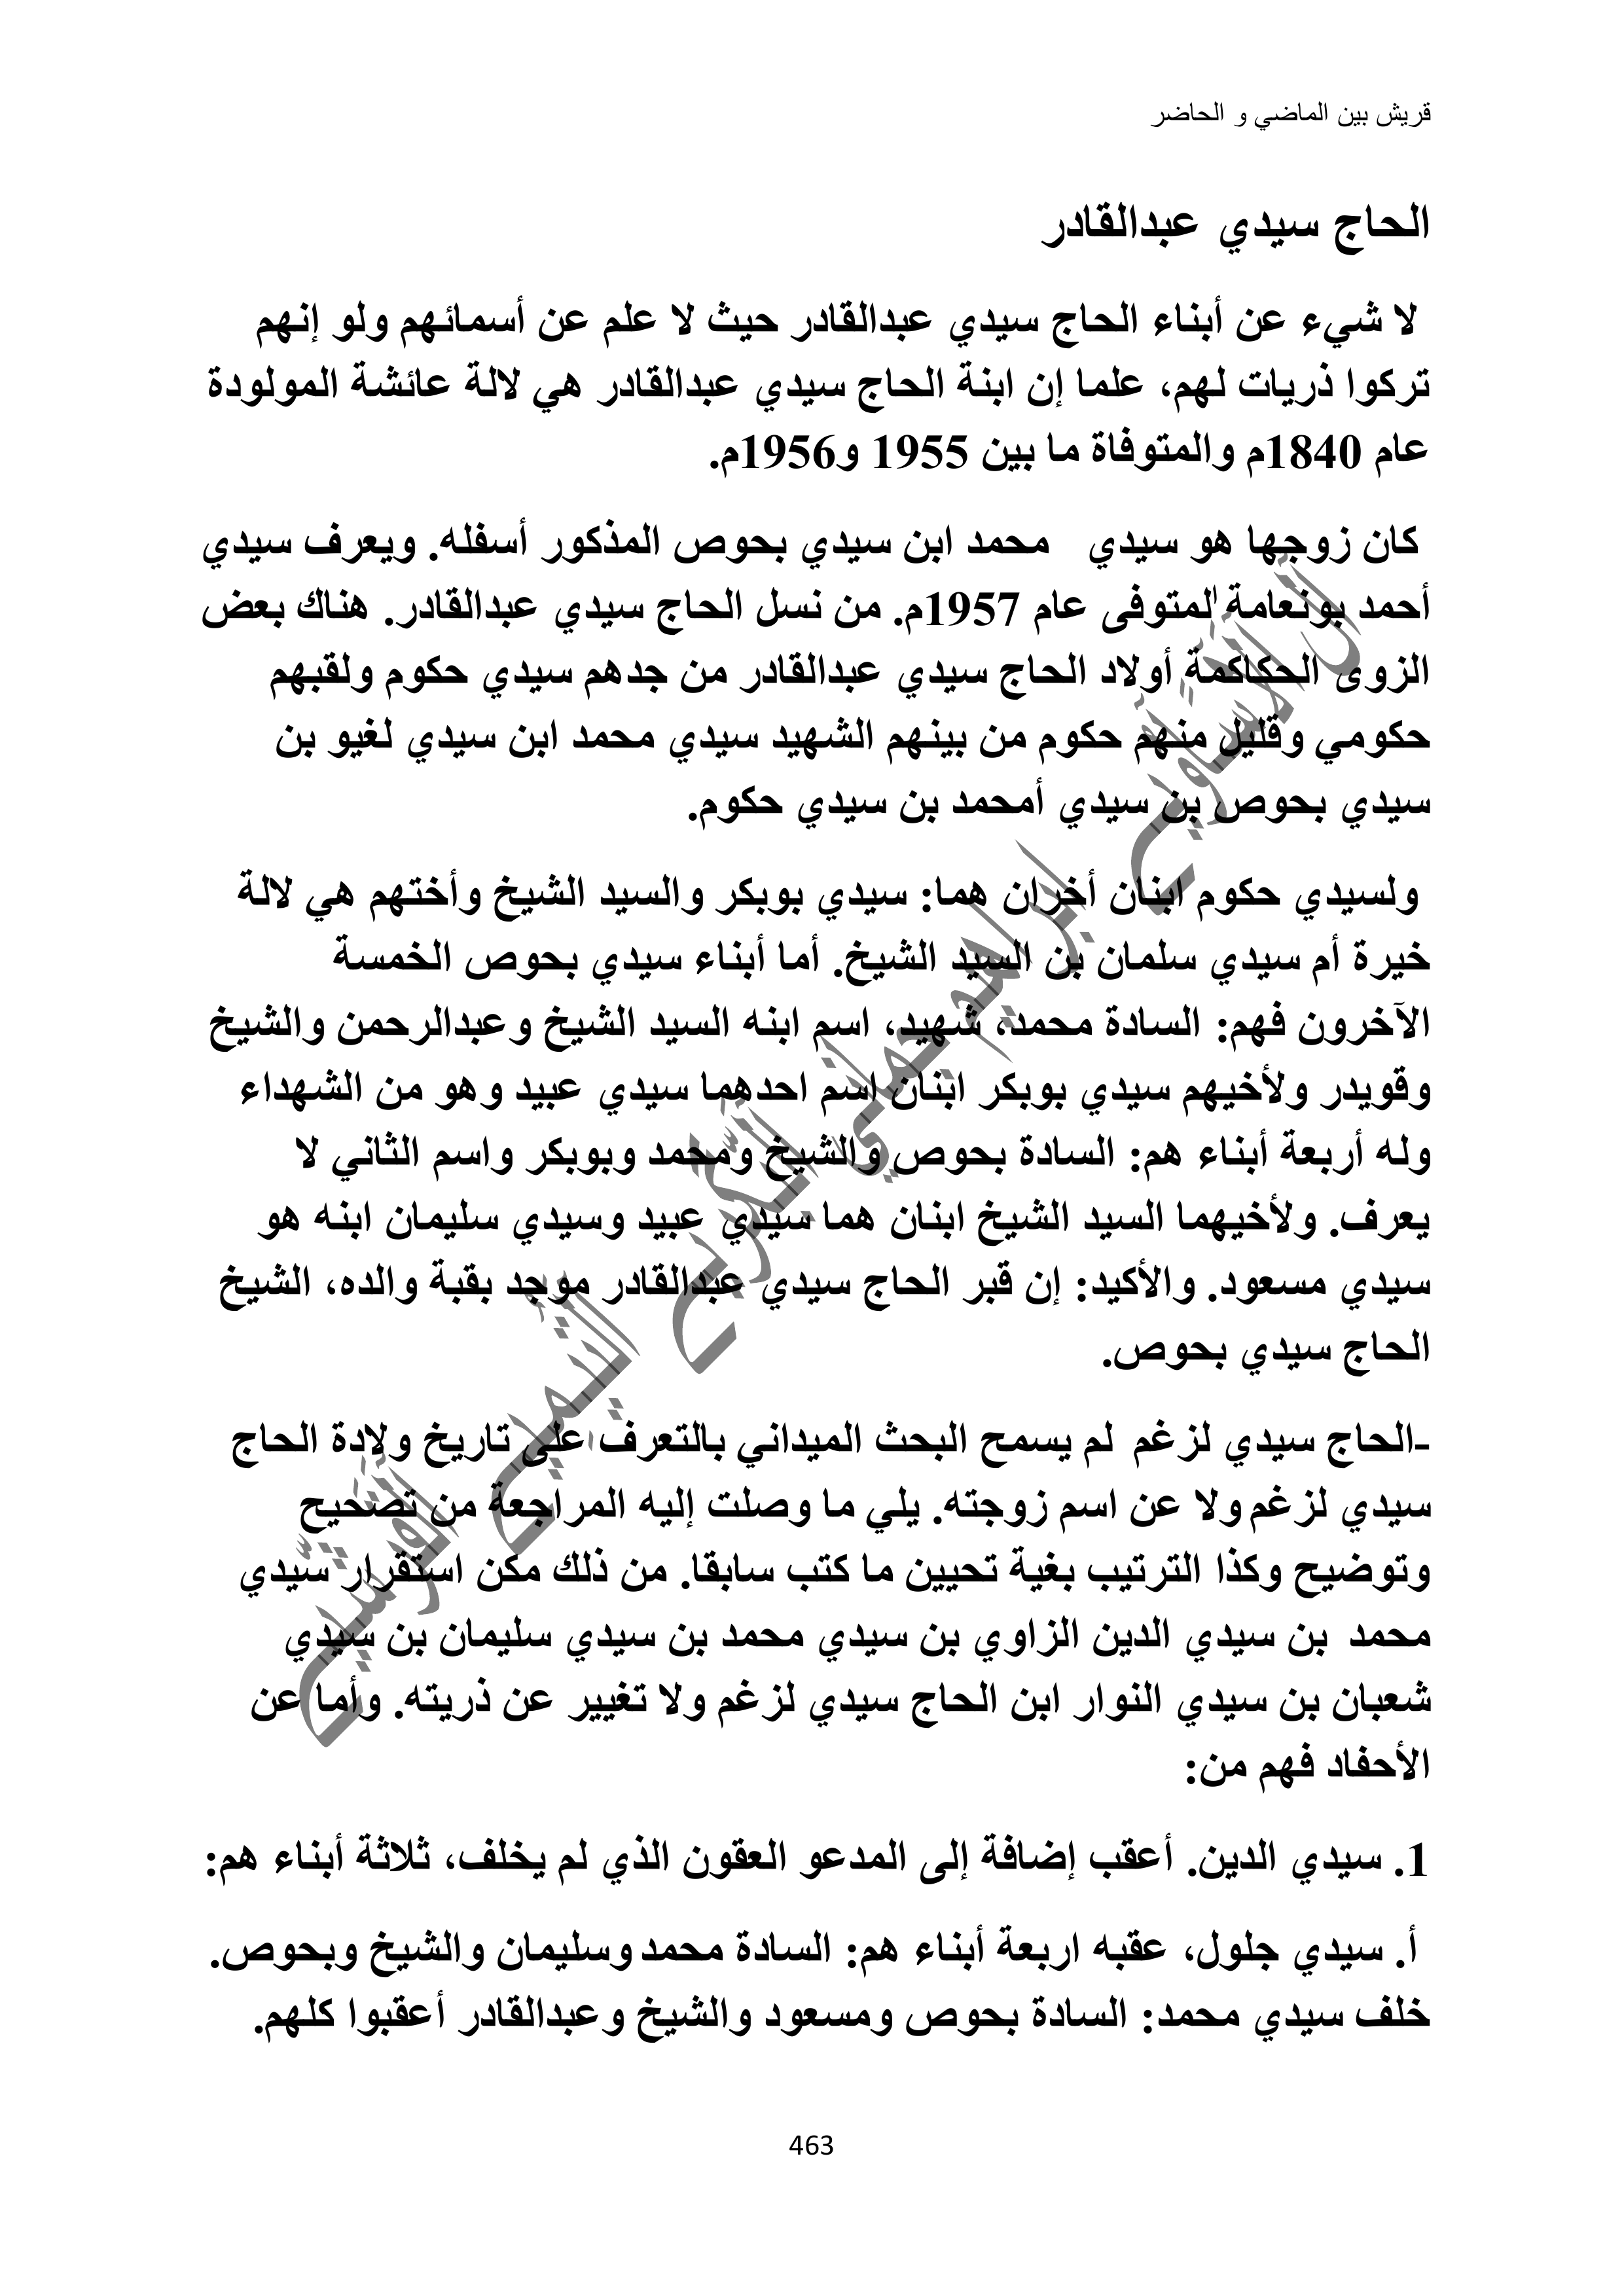 قريش بين الماضي و الحاضر
الحاج سيدي عبدالقادر
لا شيء عن أبناء الحاج سيدي عبدالقادر حيث لا علم عن أسمائهم ولو إنهم
تركوا ذريات لهم، علما إن ابنة الحاج سيدي عبدالقادر هي لالة عائشة المولودة
عام 1840م والمتوفاة ما بين 1955 و1956م.
كان زوجها هو سيدي محمد ابن سيدي بحوص المذكور أسفله. ويعرف سيدي
أحمد بونعامة المتوفى عام 1957م. من نسل الحاج سيدي عبدالقادر. هناك بعض
الزوى الحكاكمة أولاد الحاج سيدي عبدالقادر من جدهم سيدي حكوم ولقبهم
حكومي وقليل منهم حكوم من بينهم الشهيد سيدي محمد ابن سيدي لغيو بن
سيدي بحوص بن سيدي أمحمد بن سيدي حكوم.
ولسيدي حكوم ابنان أخران هما: سيدي بوبكر والسيد الشيخ وأختهم هي لالة
خيرة أم سيدي سلمان بن السيد الشيخ. أما أبناء سيدي بحوص الخمسة
الآخرون فهم: السادة محمد، شهيد، اسم ابنه السيد الشيخ وعبدالرحمن والشيخ
وقويدر ولأخيهم سيدي بوبكر ابنان اسم احدهما سيدي عبيد وهو من الشهداء
وله أربعة أبناء هم: السادة بحوص والشيخ ومحمد وبوبكر واسم الثاني لا
يعرف. ولأخيهما السيد الشيخ ابنان هما سيدي عبيد وسيدي سليمان ابنه هو
سيدي مسعود. والأكيد: إن قبر الحاج سيدي عبدالقادر موجد بقبة والده، الشيخ
الحاج سيدي بحوص.
-الحاج سيدي لزغم لم يسمح البحث الميداني بالتعرف على تاريخ ولادة الحاج
سيدي لزغم ولا عن اسم زوجته. يلي ما وصلت إليه المراجعة من تصحيح
وتوضيح وكذا الترتيب بغية تحيين ما كتب سابقا. من ذلك مكن استقرار سيدي
محمد بن سيدي الدين الزاوي بن سيدي محمد بن سيدي سليمان بن سيدي
شعبان بن سيدي النوار ابن الحاج سيدي لزغم ولا تغيير عن ذريته. وأما عن
الأحفاد فهم من:
1. سيدي الدين. أعقب إضافة إلى المدعو العقون الذي لم يخلف، ثلاثة أبناء هم:
أ. سيدي جلول، عقبه اربعة أبناء هم: السادة محمد وسليمان والشيخ وبحوص.
خلف سيدي محمد: السادة بحوص ومسعود والشيخ وعبدالقادر أعقبوا كلهم.
463